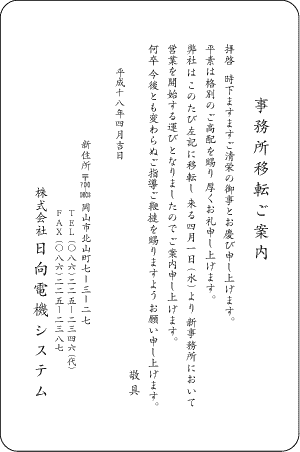 事務所移転ご案内
拝啓 時下ますますご清栄の御事とお慶び申し上げます。
平素は格別のご高配を賜り厚くお礼申し上げます。
弊社はこのたび左記に移転し来る四月一日(水)より新事務所において
営業を開始する運びとなりましたのでご案内申し上げます。
何卒今後とも変わらぬご指導ご鞭撻を賜りますようお願い申し上げます。
敬具
平成十八年四月吉日
新住所 〒700-0803 岡山市北山町七ー三ー二七
TEL(〇八六)二二五ー二三四六(代)
FAX(〇八六)二二五ー二三八七
株式会社 日向電機システム